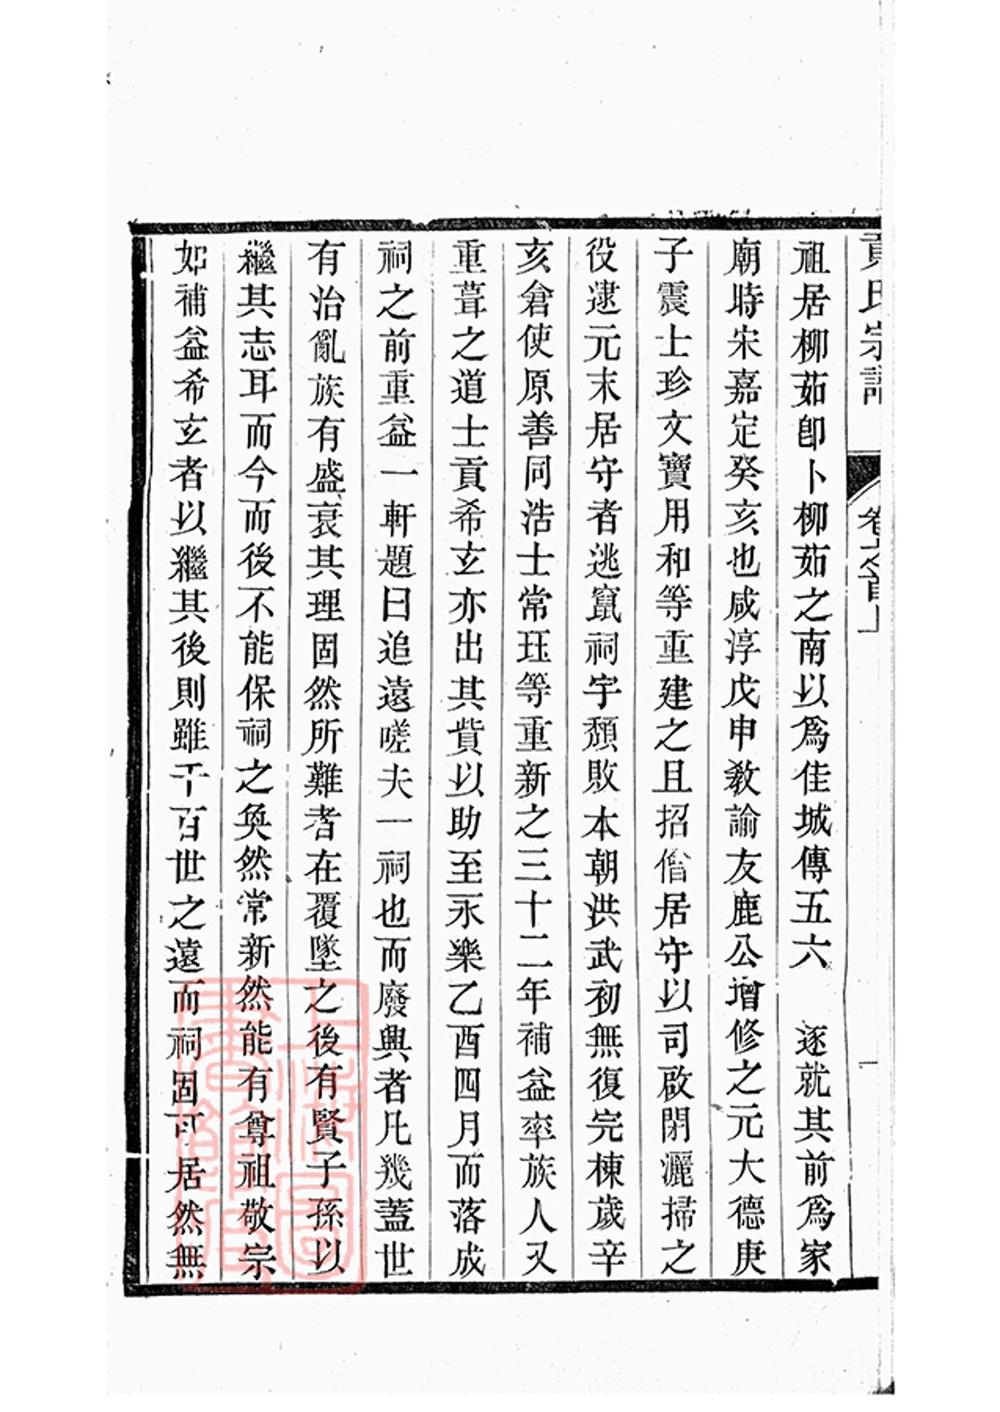 貢氏宗譜
卷之首上
一
祖居柳茹卽卜柳茹之南以爲佳城傳五六　逐就其前爲家
廟時宋嘉定癸亥也咸淳戊申教諭友鹿公增修之元大德庚
子震士珍文寶用和等重建之且招僧居守以司啟閉灑掃之
役逮元末居守者逃竄祠宇頹敗本朝洪武初無復完棟歲辛
亥倉使原善同浩士常珏等重新之三十二年補益率族人又
重葺之道士貢希玄亦出其貲以助至永樂乙酉四月而落成
祠之前重益一軒題曰追遠嗟夫一祠也而廢興者凡幾蓋世
有治亂族有盛衰其理固然所難者在覆墜之後有賢子孫以
繼其志耳而今而後不能保祠之奐然常新然能有尊祖敬宗
如補益希玄者以繼其後則雖千百世之遠而祠固可居然無
上海圖書館藏